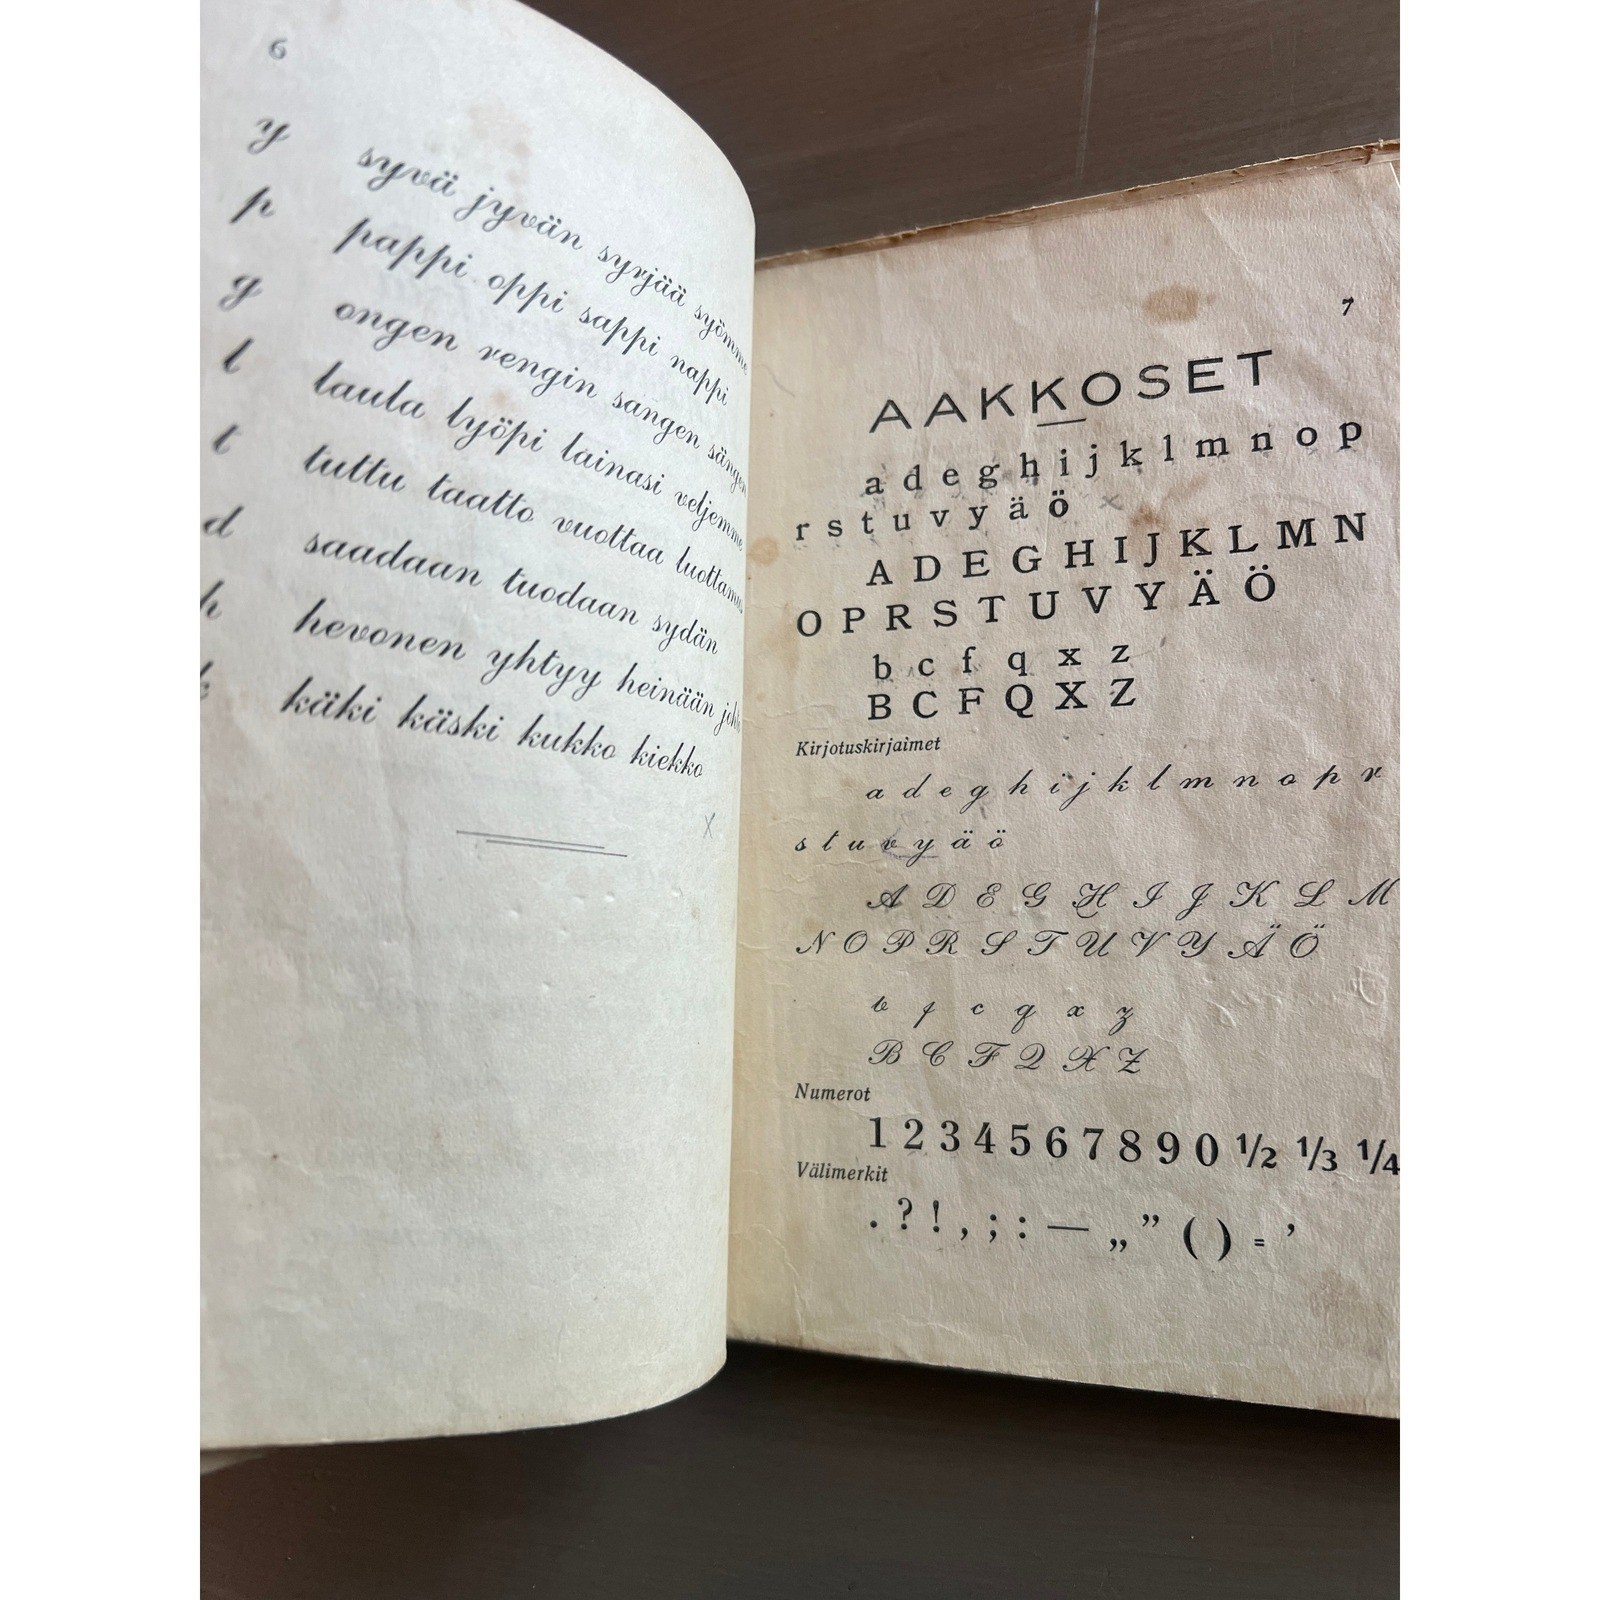 6
y syvä jyvän syrjää syömme
p pappi oppi sappi nappi
g ongen rengin sangen sängen
l laula lyöpi lainasi veljemme
t tuttu taatto vuottaa luottamus
d saadaan tuodaan sydän
h hevonen yhtyy heinään
k käki käski kukko kiekko
x
7
AAKKOSET
a d e g h i j k l m n o p
r s t u v y ä ö x
A D E G H I J K L M N
O P R S T U V Y Ä Ö
b c f q x z
B C F Q X Z
Kirjotuskirjaimet
a d e g h i j k l m n o p r
s t u v y ä ö
A D E G H I J K L M
N O P R S T U V Y Ä Ö
b f c q x z
B C F Q X Z
Numerot
1 2 3 4 5 6 7 8 9 0 1/2 1/3 1/4
Välimerkit
. ? ! , ; : — „ ” ( ) = ’